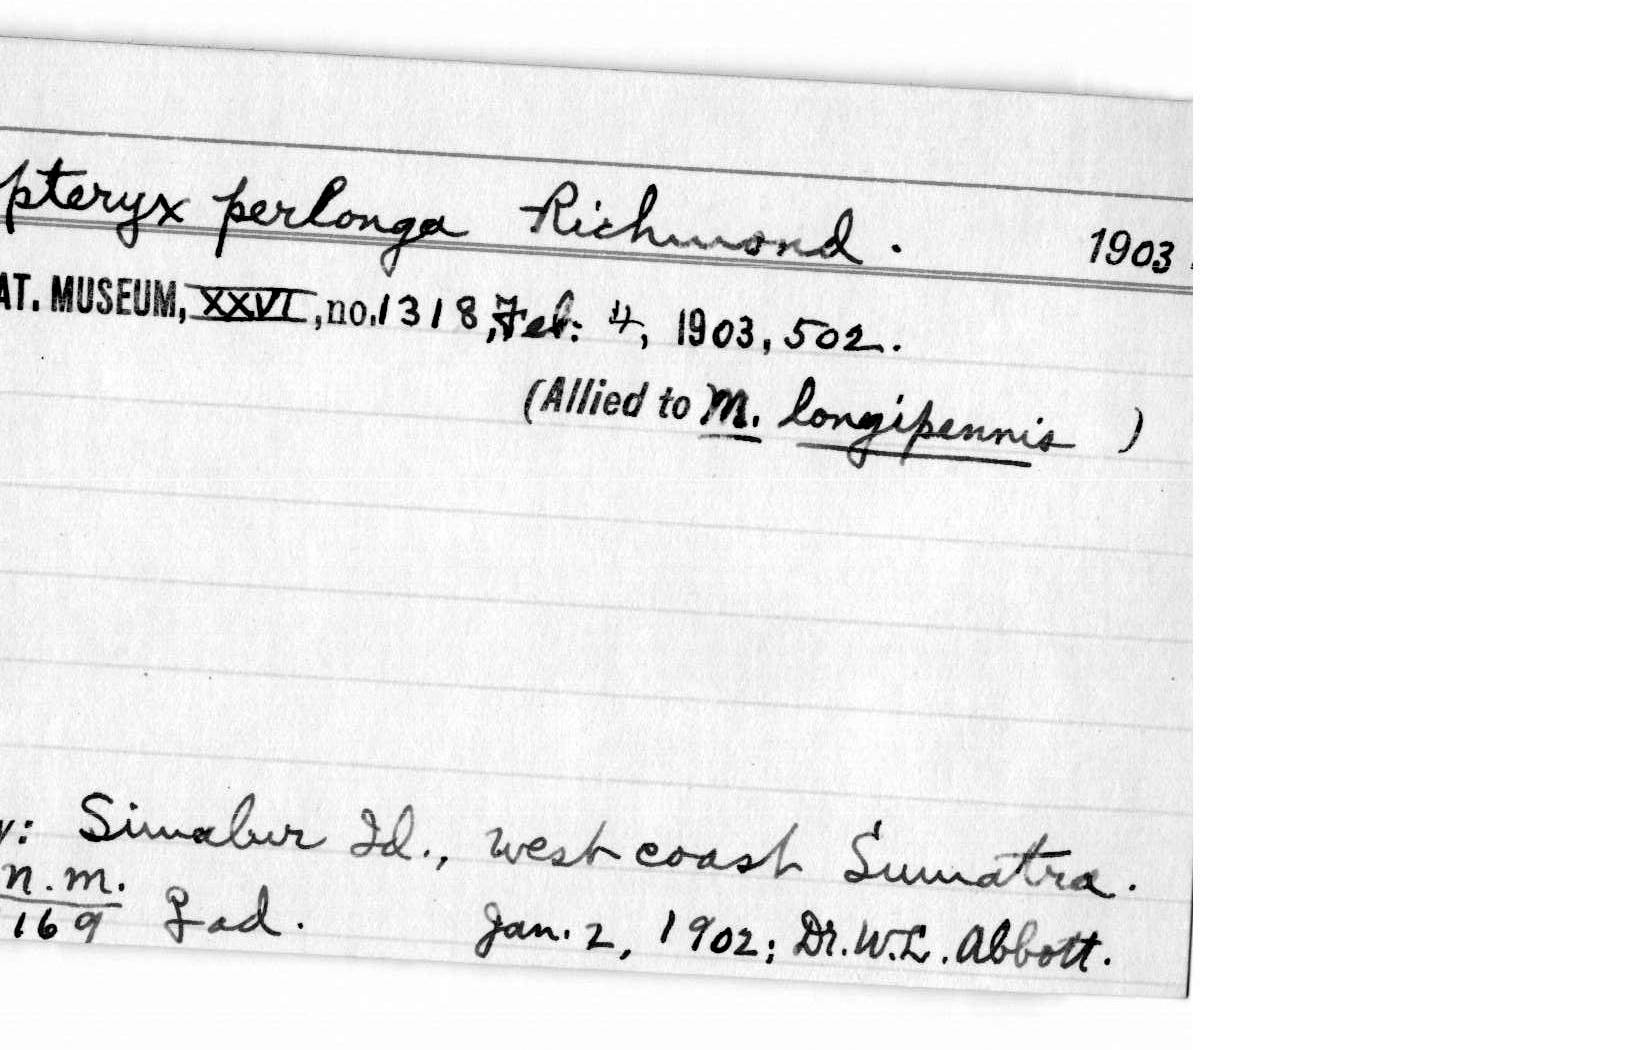 pteryx perlonga Richmond. 1903.
AT. MUSEUM, XXVI, no. 1318, Feb. 4, 1903, 502.
(Allied to M. longipennis )
y: Simalur Id., west coast Sumatra.
n.m.
169 ♀ ad. Jan. 2, 1902; Dr. W.L. Abbott.